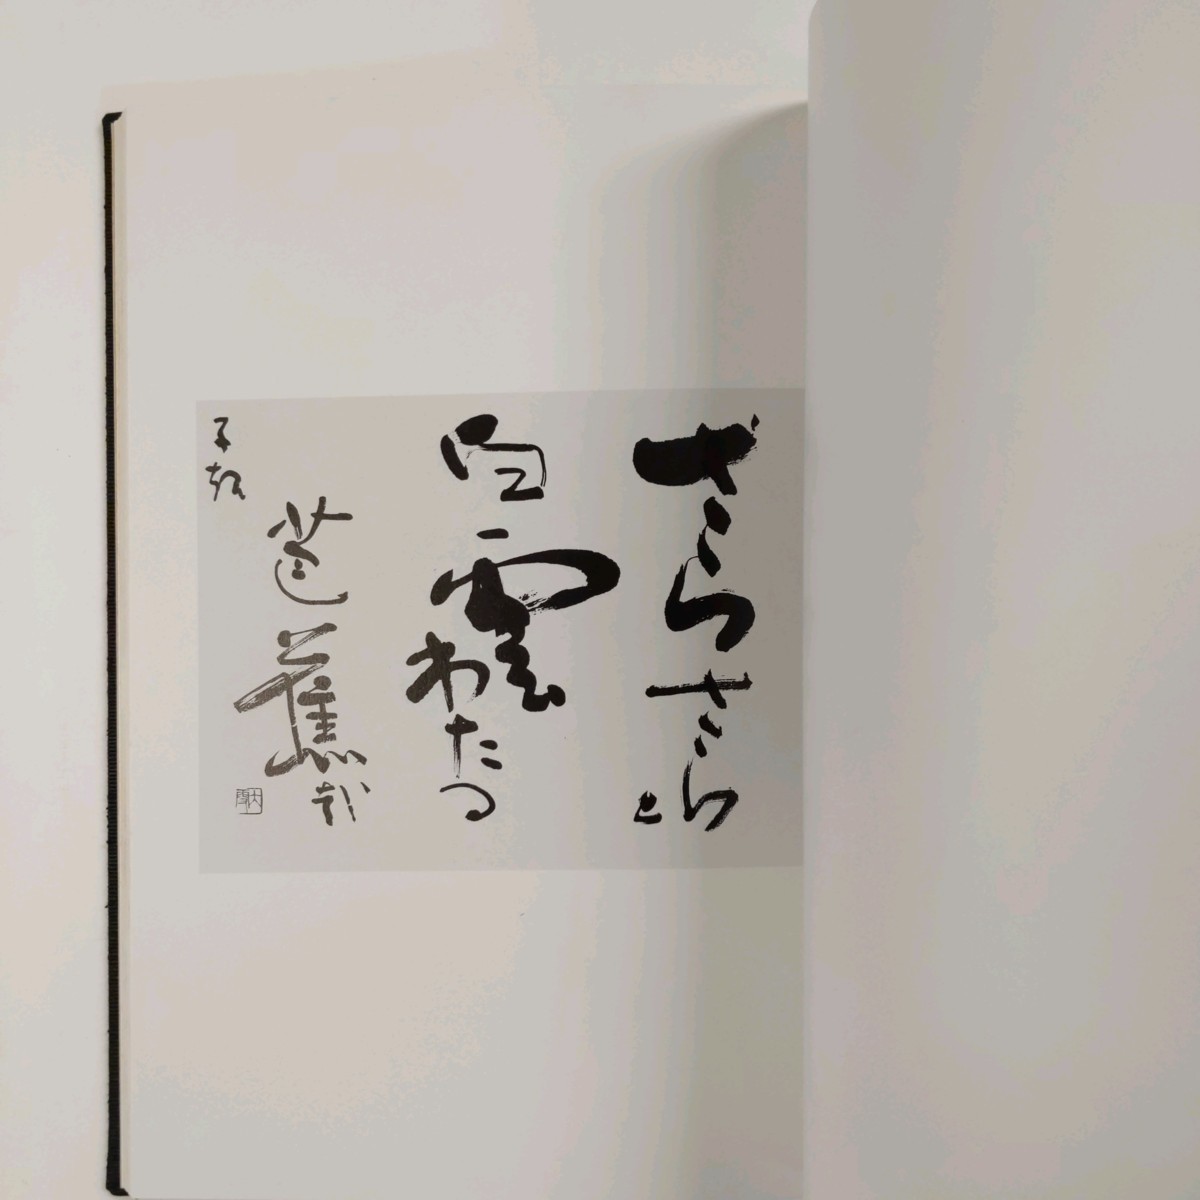 さらさらと
白雲わたる
芭蕉哉
子規